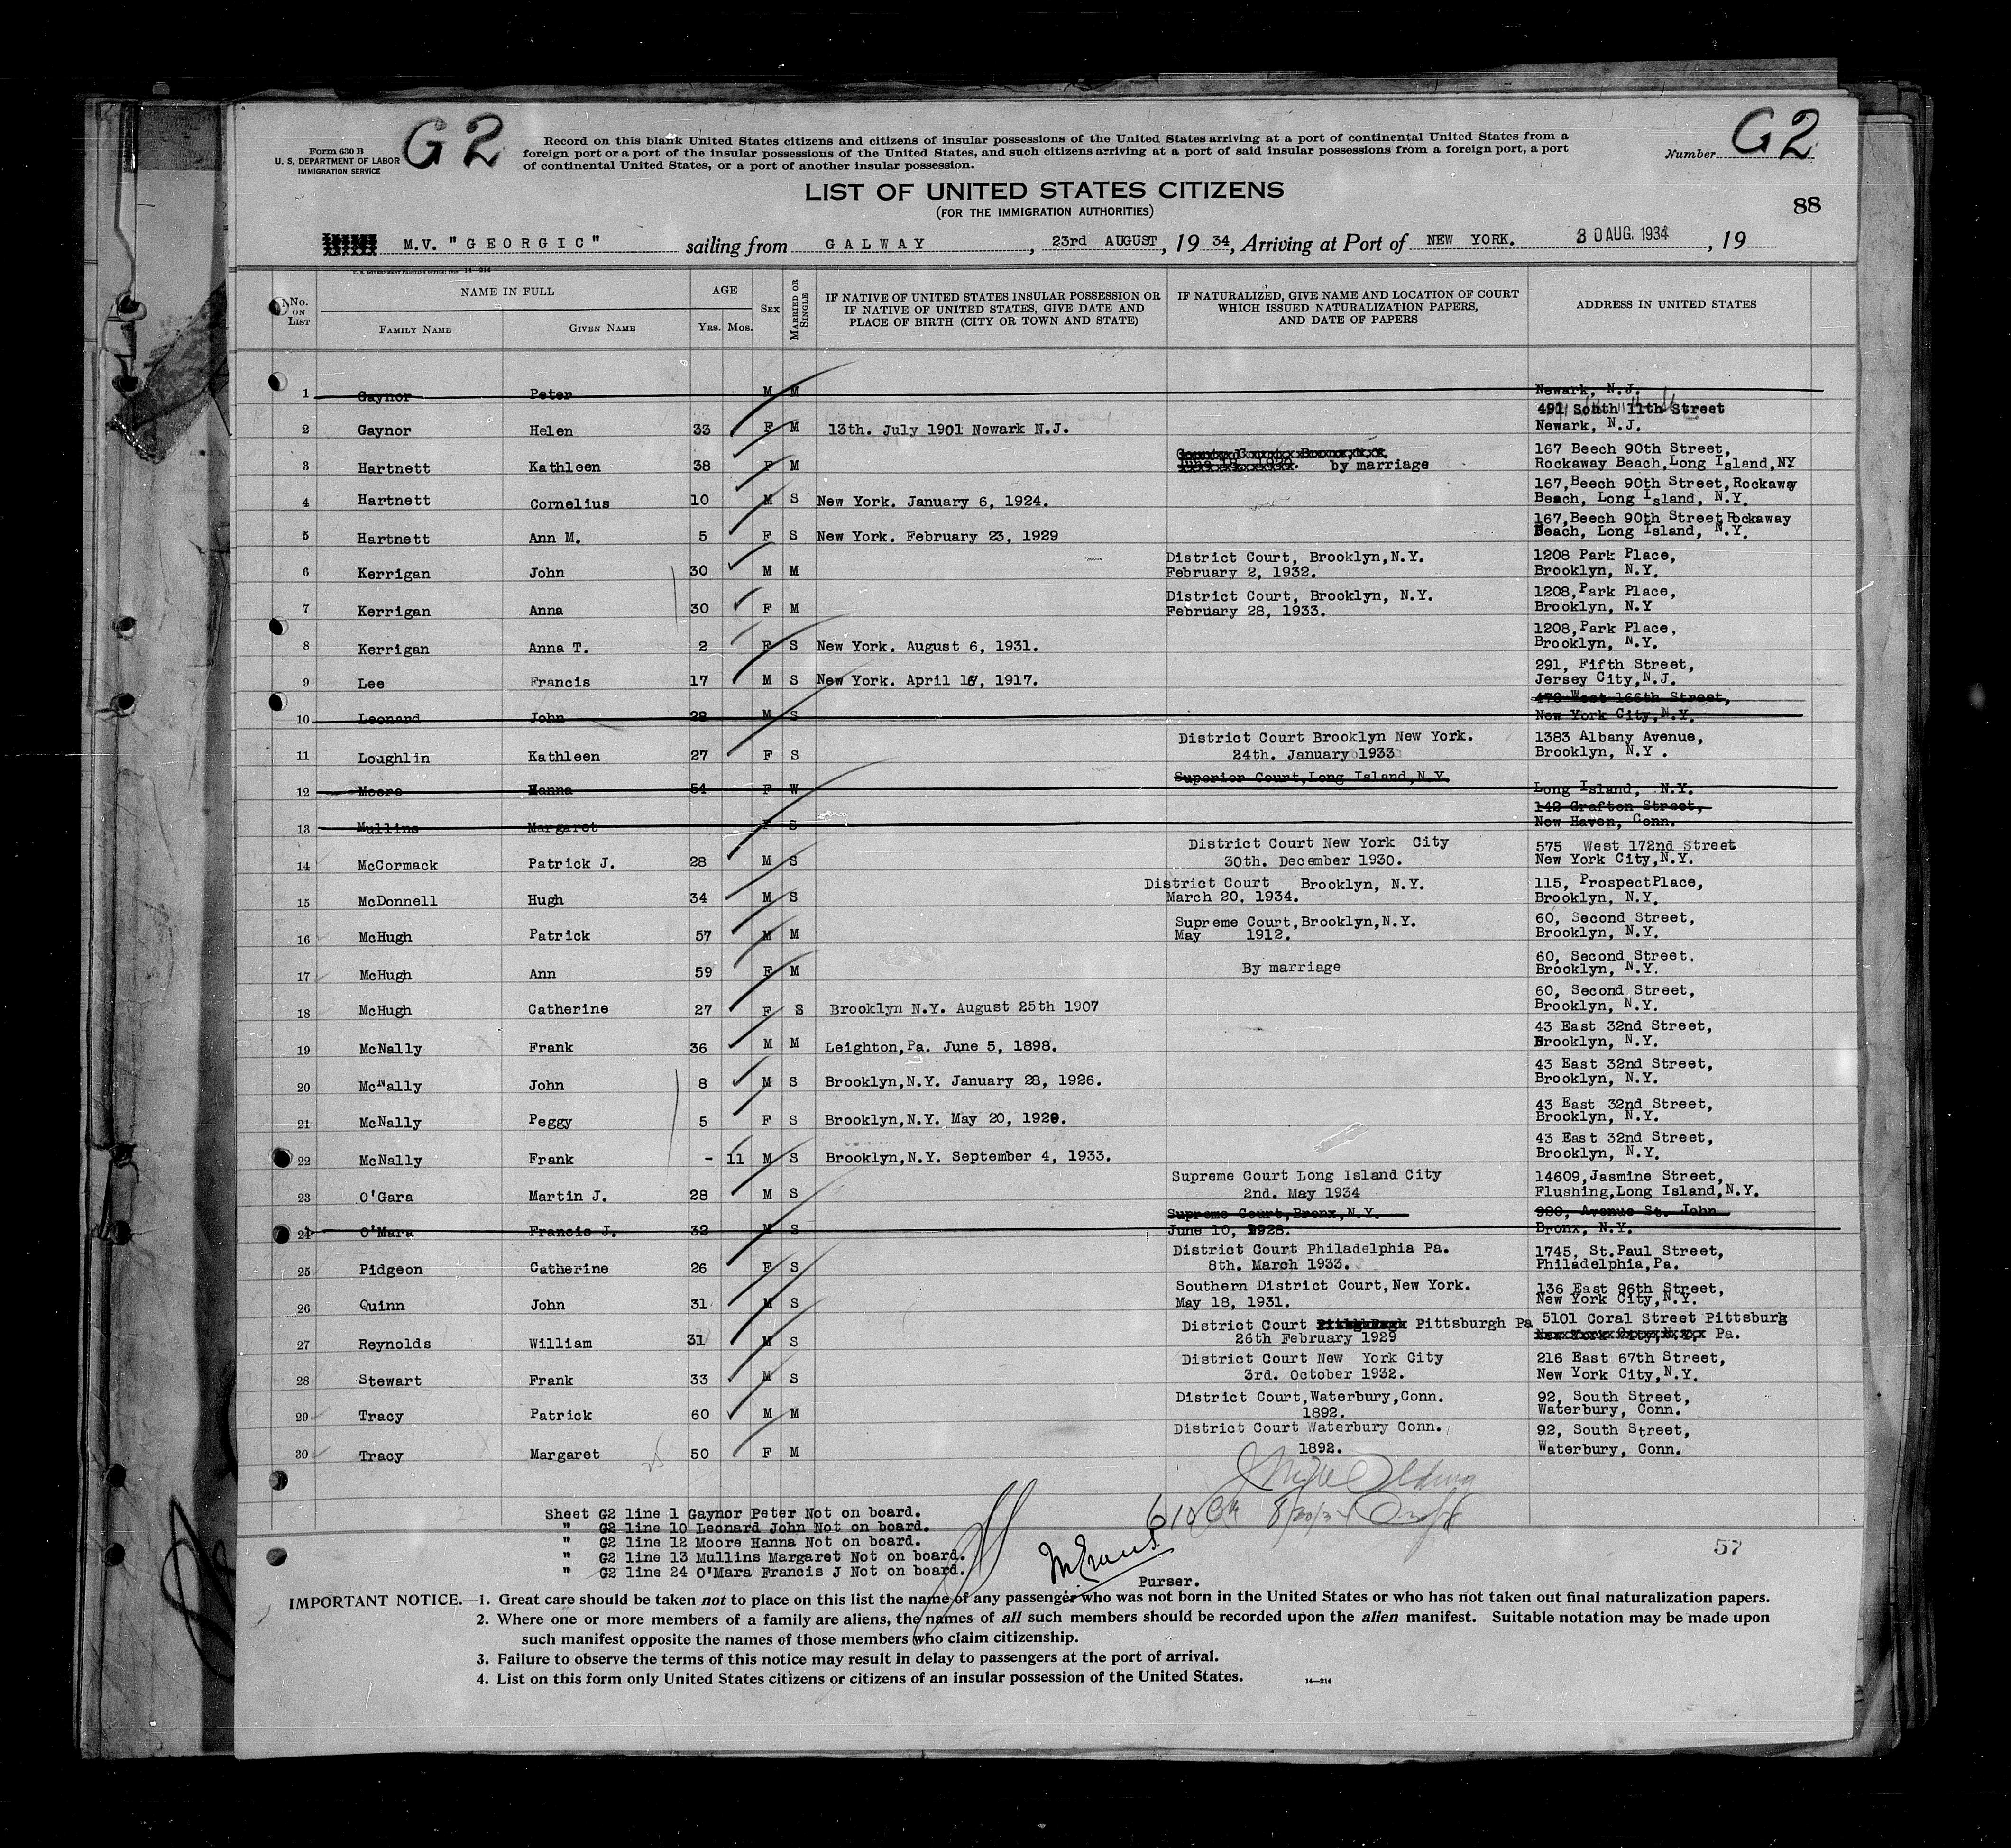 G2
G2
Form 630 B
U. S. DEPARTMENT OF LABOR
IMMIGRATION SERVICE
Record on this blank United States citizens and citizens of insular possessions of the United States arriving at a port of continental United States from a
foreign port or a port of the insular possessions of the United States, and such citizens arriving at a port of said insular possessions from a foreign port, a port
of continental United States, or a port of another insular possession.
Number
LIST OF UNITED STATES CITIZENS
(FOR THE IMMIGRATION AUTHORITIES)
88
M.V. "GEORGIC" sailing from GALWAY, 23rd AUGUST, 19 34, Arriving at Port of NEW YORK. 30 AUG. 1934, 19
U. S. GOVERNMENT PRINTING OFFICE: 14-214
No. ON LIST
NAME IN FULL
FAMILY NAME GIVEN NAME
AGE
YRS. MOS.
SEX
MARRIED OR SINGLE
IF NATIVE OF UNITED STATES INSULAR POSSESSION OR
IF NATIVE OF UNITED STATES, GIVE DATE AND
PLACE OF BIRTH (CITY OR TOWN AND STATE)
IF NATURALIZED, GIVE NAME AND LOCATION OF COURT
WHICH ISSUED NATURALIZATION PAPERS,
AND DATE OF PAPERS
ADDRESS IN UNITED STATES
1 Gaynor Peter M M Newark, N.J.
491 South 11th Street
2 Gaynor Helen 33 F M 13th. July 1901 Newark N.J. Newark, N.J.
167 Beech 90th Street,
3 Hartnett Kathleen 38 F M by marriage Rockaway Beach, Long Island, NY
167, Beech 90th Street, Rockaway
4 Hartnett Cornelius 10 M S New York. January 6, 1924. Beach, Long Island, N.Y.
167, Beech 90th Street Rockaway
5 Hartnett Ann M. 5 F S New York. February 23, 1929 Beach, Long Island, N.Y.
District Court, Brooklyn, N.Y. 1208 Park Place,
6 Kerrigan John 30 M M February 2, 1932. Brooklyn, N.Y.
District Court, Brooklyn, N.Y. 1208, Park Place,
7 Kerrigan Anna 30 F M February 28, 1933. Brooklyn, N.Y
1208, Park Place,
8 Kerrigan Anna T. 2 F S New York. August 6, 1931. Brooklyn, N.Y.
291, Fifth Street,
9 Lee Francis 17 M S New York. April 16, 1917. Jersey City, N.J.
470 West 166th Street,
10 Leonard John 28 M S New York City, N.Y.
District Court Brooklyn New York. 1383 Albany Avenue,
11 Loughlin Kathleen 27 F S 24th. January 1933 Brooklyn, N.Y .
Superior Court, Long Island, N.Y.
12 Moore Hanna 54 F W Long Island, N.Y.
142 Grafton Street,
13 Mullins Margaret F S New Haven, Conn.
District Court New York City 575 West 172nd Street
14 McCormack Patrick J. 28 M S 30th. December 1930. New York City, N.Y.
District Court Brooklyn, N.Y. 115, Prospect Place,
15 McDonnell Hugh 34 M S March 20, 1934. Brooklyn, N.Y.
Supreme Court, Brooklyn, N.Y. 60, Second Street,
16 McHugh Patrick 57 M M May 1912. Brooklyn, N.Y.
60, Second Street,
17 McHugh Ann 59 F M By marriage Brooklyn, N.Y.
60, Second Street,
18 McHugh Catherine 27 F S Brooklyn N.Y. August 25th 1907 Brooklyn, N.Y.
43 East 32nd Street,
19 McNally Frank 36 M M Leighton, Pa. June 5, 1898. Brooklyn, N.Y.
43 East 32nd Street,
20 McNally John 8 M S Brooklyn, N.Y. January 28, 1926. Brooklyn, N.Y.
43 East 32nd Street,
21 McNally Peggy 5 F S Brooklyn, N.Y. May 20, 1929. Brooklyn, N.Y.
43 East 32nd Street,
22 McNally Frank - 11 M S Brooklyn, N.Y. September 4, 1933. Brooklyn, N.Y.
Supreme Court Long Island City 14609, Jasmine Street,
23 O'Gara Martin J. 28 M S 2nd. May 1934 Flushing, Long Island, N.Y.
Supreme Court, Bronx, N.Y. 980, Avenue St. John
24 O'Mara Francis J. 32 M S June 10, 1928. Bronx, N.Y.
District Court Philadelphia Pa. 1745, St. Paul Street,
25 Pidgeon Catherine 26 F S 8th. March 1933. Philadelphia, Pa.
Southern District Court, New York. 136 East 96th Street,
26 Quinn John 31 M S May 18, 1931. New York City, N.Y.
District Court Pittsburgh Pa 5101 Coral Street Pittsburg
27 Reynolds William 31 M S 26th February 1929 Pa.
District Court New York City 216 East 67th Street,
28 Stewart Frank 33 M S 3rd. October 1932. New York City, N.Y.
District Court, Waterbury, Conn. 92, South Street,
29 Tracy Patrick 60 M M 1892. Waterbury, Conn.
District Court Waterbury Conn. 92, South Street,
30 Tracy Margaret 50 F M 1892. Waterbury, Conn.
Sheet G2 line 1 Gaynor Peter Not on board.
" G2 line 10 Leonard John Not on board.
" G2 line 12 Moore Hanna Not on board.
" G2 line 13 Mullins Margaret Not on board.
" G2 line 24 O'Mara Francis J Not on board.
57
Purser.
IMPORTANT NOTICE.—1. Great care should be taken not to place on this list the name of any passenger who was not born in the United States or who has not taken out final naturalization papers.
2. Where one or more members of a family are aliens, the names of all such members should be recorded upon the alien manifest. Suitable notation may be made upon
such manifest opposite the names of those members who claim citizenship.
3. Failure to observe the terms of this notice may result in delay to passengers at the port of arrival.
4. List on this form only United States citizens or citizens of an insular possession of the United States.
14-214